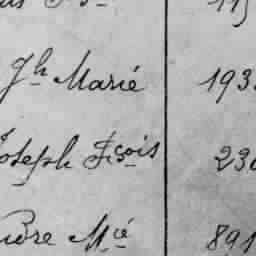 Jh Marié 193
Joseph Fçois 236
Pierre Mié 891